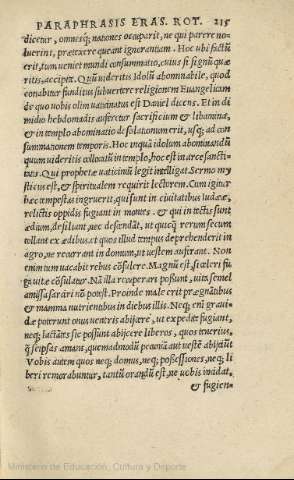 PARAPHRASIS ERAS. ROT. 215
dicetur, omnesq; nationes occuparit, ne qui parere no
luerint, prætexere queant ignorantiam. Hoc ubi factũ
erit, tum veniet mundi consummatio, cuius si signũ quæ
ritis, accipite. Quũ uideritis Idolũ abominabile, quod
conabitur funditus subuertere religionem Euangelicam
de quo uobis olim uaticinatus est Daniel dicens. Et in di
midio hebdomadis auferetur sacrificium & libamina,
& in templo abominatio desolationum erit, usq; ad con
summationem temporis. Hoc inquã idolum abominandũ
quum uideritis collocatũ in templo, hoc est in arce sancti=
tatis. Qui prophetæ uaticiniũ legit intelligat. Sermo my
sticus est, & spiritualem requirit lectorem. Cum igitur
hæc tempestas ingruerit, qui sunt in ciuitatibus Iudææ,
relictis oppidis fugiant in montes. & qui in tectis sunt
ædium, desiliant, nec descendãt, ut quicq̃ rerum secum
tollant ex ædibus. et quos illud tempus deprehenderit in
agro, ne recurrant in domum, ut uestem auferant. Non
enim tum uacabit rebus cõsulere. Magnũ est, si celeri fu
ga uitæ cõsulatur. Nã illa recuperari possunt, uita semel
amissa sarciri nõ potest. Proinde male erit prægnãtibus
& mamma nutrientibus in diebus illis. Neq; enĩ graui=
dæ poterunt onus ventris abijcere, ut expeditæ fugiant,
neq; lactãtes sic possunt abijcere liberos, quos tenerius,
q̃ seipsas amant, quemadmodũ pecuniã aut vestẽ abijciũt
Vobis autem quos neq; domus, neq; possessiones, neq; li
beri remorabuntur, tantũ orandũ est, ne vobis inuidat,
& fugien-
Ministerio de Educación, Cultura y Deporte